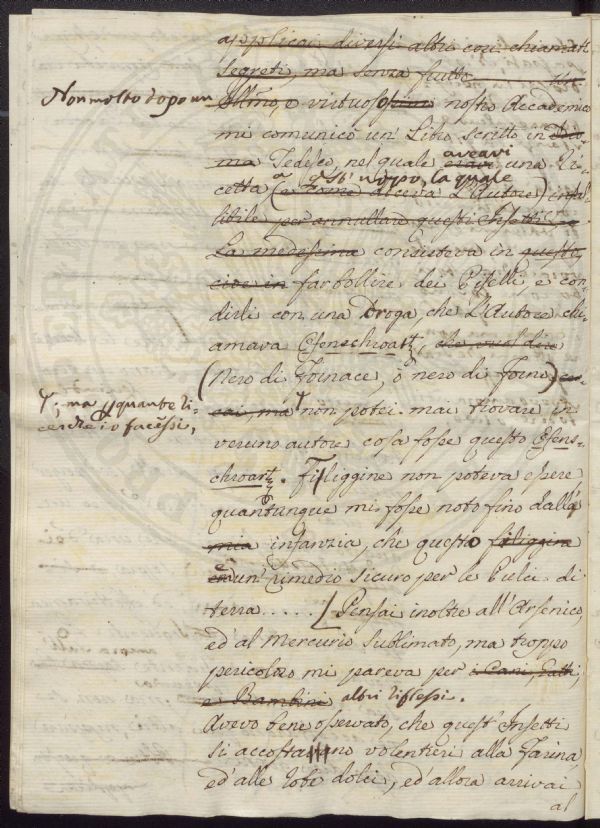 applicai diversi altri così chiamati
segreti, ma senza frutto
Non molto dopo un
virtuoso nostro Accademico
mi comunicò un' Libro scritto in
Tedesco, nel quale aveavi una Ri-
cetta a st' uopo, la quale
(e come diceva L'Autore) infal-
libile per annullare questi Insetti
La medesima consisteva in questo,
cioè in far bollire dei Piselli, e con-
dirli con una Droga, che L'Autore chi-
amava Ofenschwartz, che vuol dire
(Nero di Fornace, ò nero di Forno)
; ma per quante ri-
cerche io facessi,
ma non potei mai trovare in
veruno autore cosa fosse questo Ofens-
chwartz. Filiggine non poteva essere
quantunque mi fosse noto fino dalla
mia infanzia, che questo filiggine
un' rimedio sicuro per le Pulci di
terra..... Pensai inoltre all' Arsenico,
ed' al Mercurio sublimato, ma troppo
pericoloso mi pareva per i Cani, Gatti,
e Bambini altri riflessi.
Avevo bene osservato, che quest' Insetti
si accostavano volentieri alla Farina,
ed' alle robe dolci, ed' allora arrivai
al